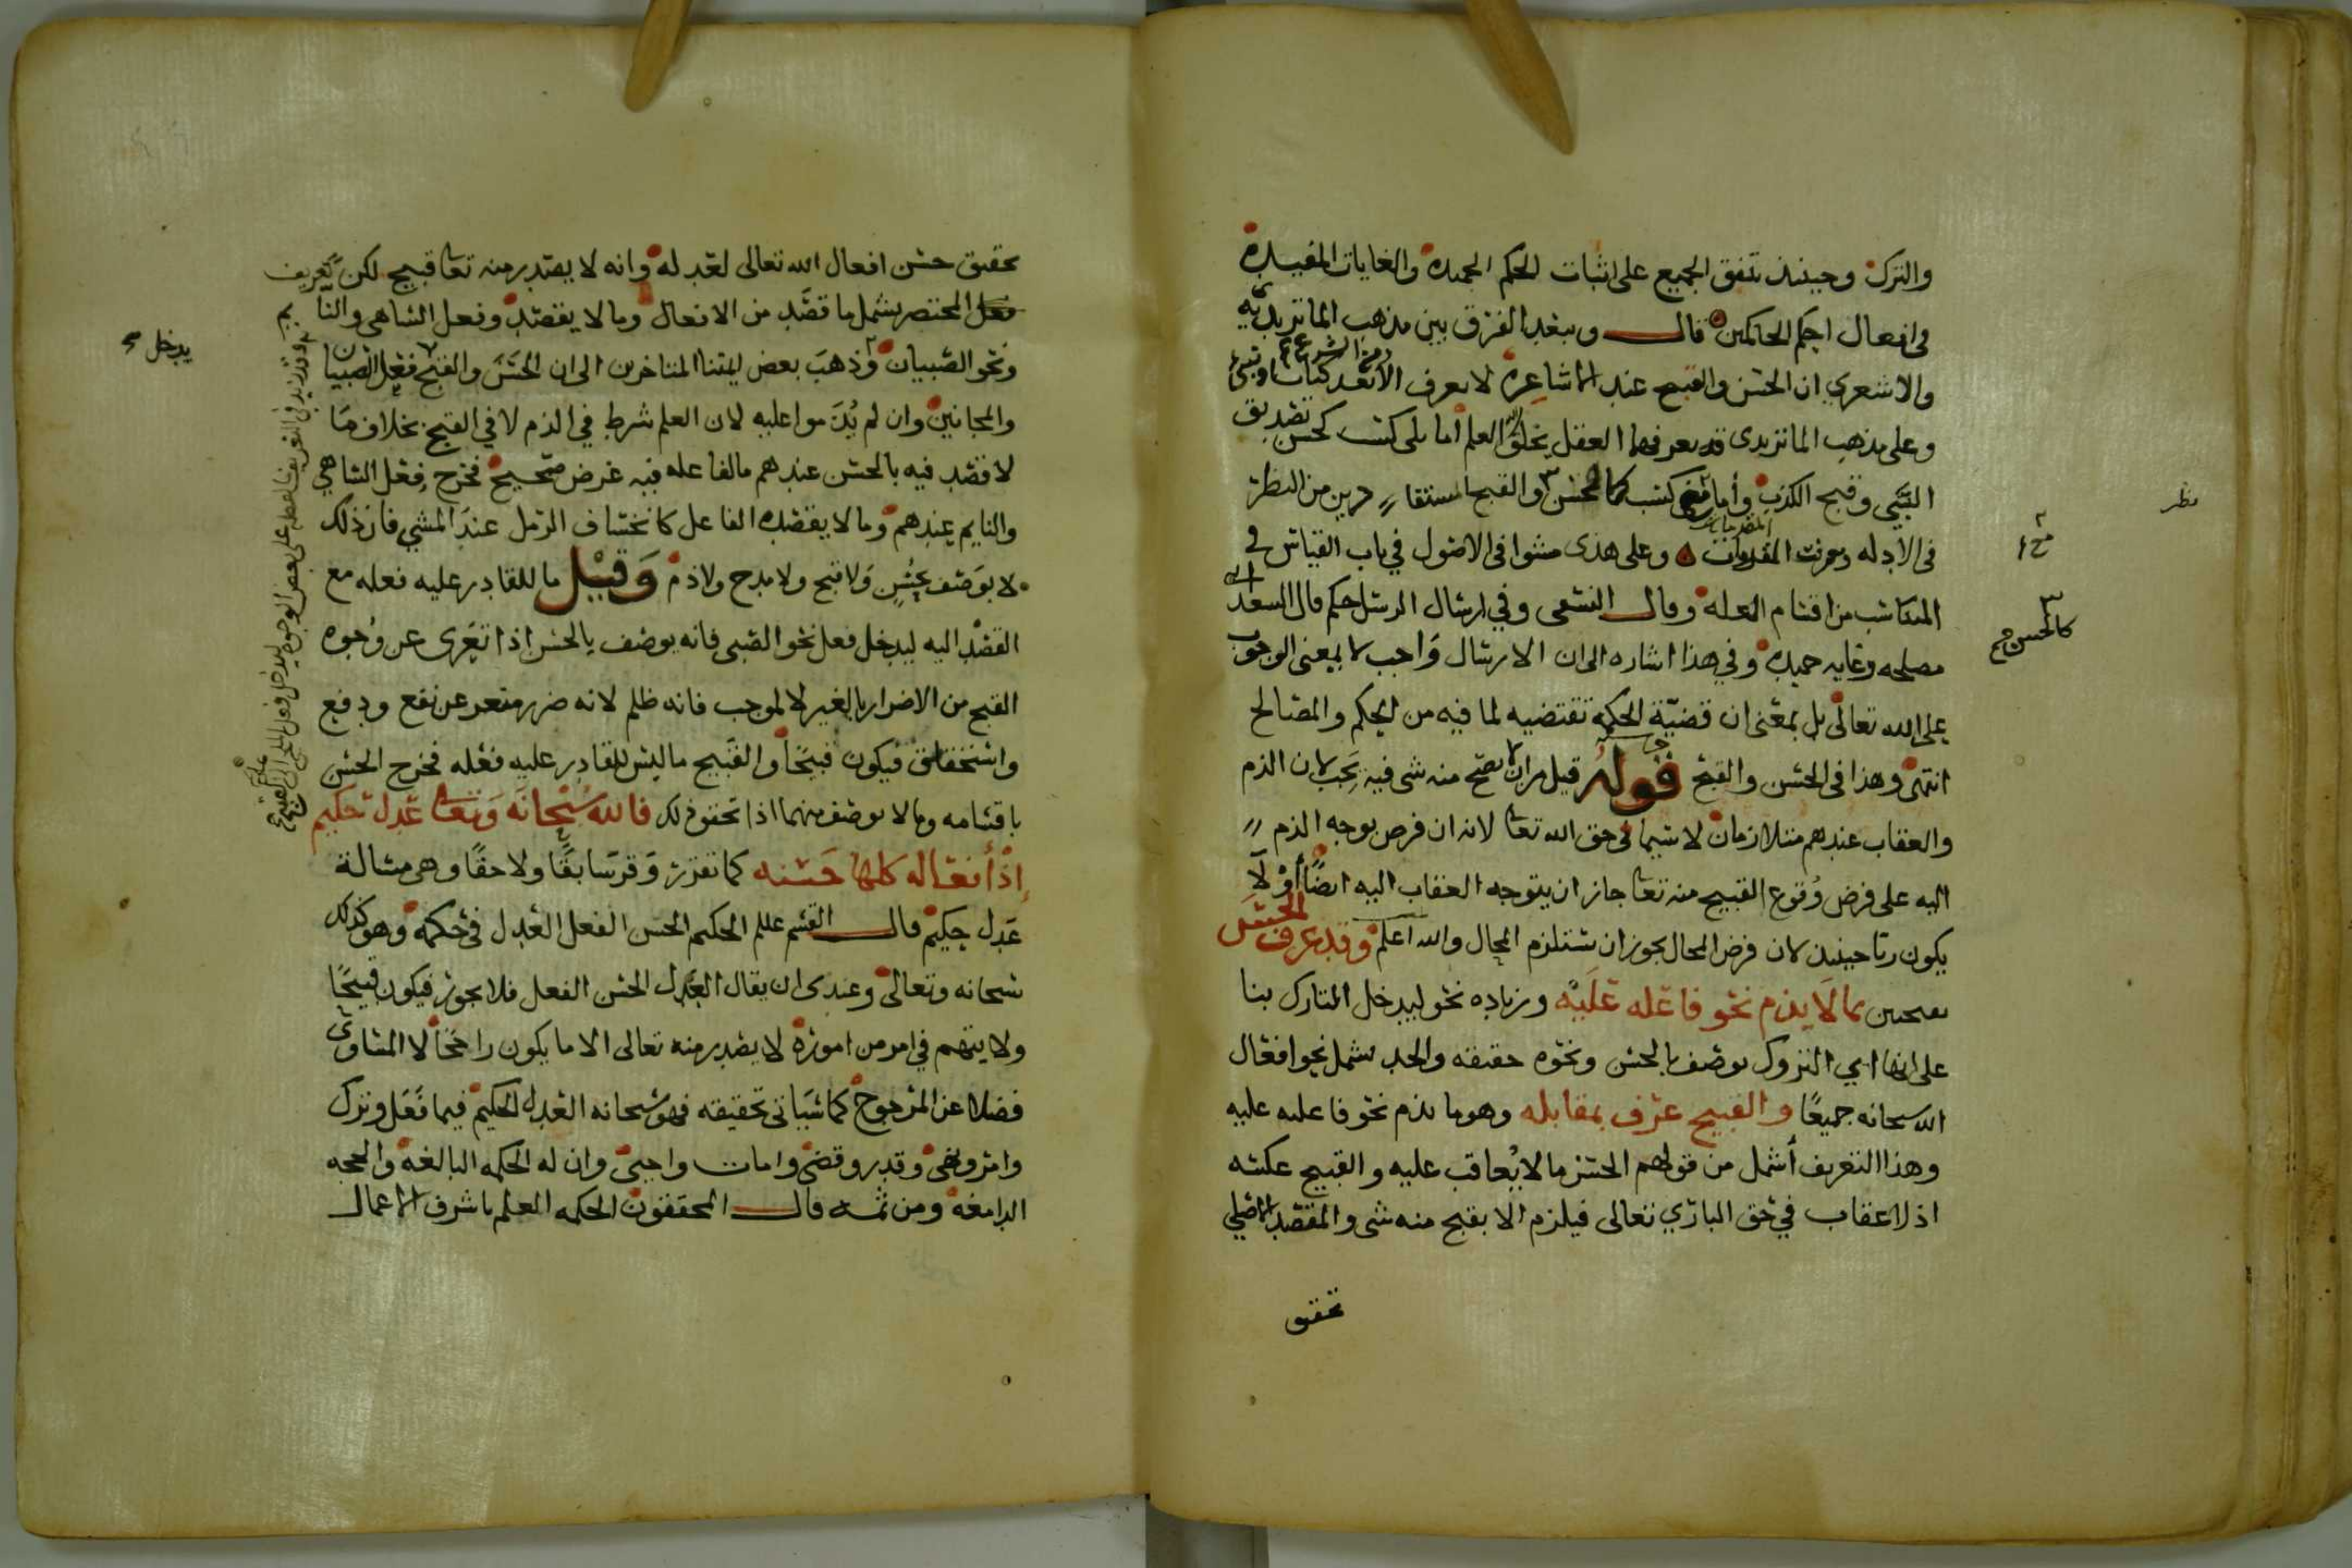 والترك وحينئذ يتفق الجميع على اثبات الحكم الحميدة والغايات المفيدة
في افعال احكم الحاكمين قال وسعد الفرق بين مذهب الماتريديه
والاشعري ان الحسن والقبح عند الاشاعرة لا يعرف الا بعد كتاب ونبي
وعلى مذهب الماتريدى قد يعرفهما العقل بخلق الله العلم اما بلى كسب كحسن تصديق
النبي وقبح الكذب وأما مع كسب كالحسن والقبح المستفادين من النظر
في الادله وعرفت المقدمات وعلى هذى مشوا في الاصول في باب القياس في
المناسب من اقسام العلة وقال النسفي وفي ارسال الرسل حكم قال السعد اي
مصلحه وغايه حميده وفي هذا اشاره الى ان الارسال واجب لا بمعنى الوجوب
على الله تعالى بل بمعنى ان قضية الحكمة تقتضيه لما فيه من الحكم والمصالح
انتهى وهذا في الحسن والقبح قوله قيل من ان لا يصح منه شي فيه تجب لان الذم
والعقاب عندهم متلازمان لا سيما في حق الله تعا لانه ان فرض بوجه الذم
اليه على فرض وقوع القبيح منه تعا جاز ان يتوجه العقاب اليه ايضا أو لا
يكون ربا حينئذ لان فرض المحال يجوز ان يستلزم المحال والله اعلم وقد عرف الحسن
بما لا يذم نحو فاعله عليه وزياده نحو ليدخل المتارك بنا
على انها اي التروك توصف بالحسن ونحوه حقيقه والحد يشمل نحو افعال
الله سبحانه جميعا والقبيح عرف بمقابله وهو ما يذم نحو فاعله عليه
وهذا التعريف أشمل من قولهم الحسن ما لا يعاقب عليه والقبيح عكسه
اذ لا عقاب في حق الباري تعالى فيلزم الا يقبح منه شي والمقصد الاصلي
تحقيق
نظر
كالحسن صح
تحقيق حسن افعال الله تعالى لعدله وانه لا يصدر منه تعا قبيح لكن تعريف
المختصر يشمل ما قصد من الافعال وما لا يقصد وفعل الساهي والنايم
ونحو الصبيان وذهب بعض ايمتنا المتاخرين الى ان الحسن والقبح فعل الصبيان
والمجانين وان لم يذموا عليه لان العلم شرط في الذم لا في القبح بخلاف ما
لا قصد فيه بالحسن عندهم ما لفاعله فيه غرض صحيح فخرج فعل الساهي
والنايم عندهم وما لا يقصده الفاعل كانخساف الرمل عند المشي فان ذلك
لا يوصف بحسن ولا قبح ولا مدح ولا ذم وقيل ما للقادر عليه فعله مع
القصد اليه ليدخل فعل نحو الصبي فانه يوصف بالحسن اذا تعرى عن وجوه
القبح من الاضرار بالغير لا لموجب فانه ظلم لانه ضرر متعر عن نفع ودفع
واستحقاق فيكون قبيحا والقبيح ما ليس للقادر عليه فعله فخرج الحسن
باقسامه وما لا يوصف منهما اذا تحقق ذلك فالله سبحانه وتعا عدل حكيم
إذ أفعاله كلها حسنه كما تقرر وقر سابقا ولاحقا وهي مسالة
عدل حكيم قال القسم علم الحكيم الحسن الفعل العدل في حكمه وهو كذلك
سبحانه وتعالى وعندى ان يقال العدل الحسن الفعل فلا يجوز فيكون قبيحا
ولا يتهم في امر من اموره لا يصدر منه تعالى الا ما يكون راجحا لا المساوى
فضلا عن المرجوح كما سياتي تحقيقه فهو سبحانه العدل الحكيم فيما فعل وترك
وامر ونهى وقدر وقضى وامات واحيى وان له الحكمه البالغه والحجه
الدامغه ومن ثمه قال المحققون الحكمه العلم باشرف الاعمال
يدخل صح